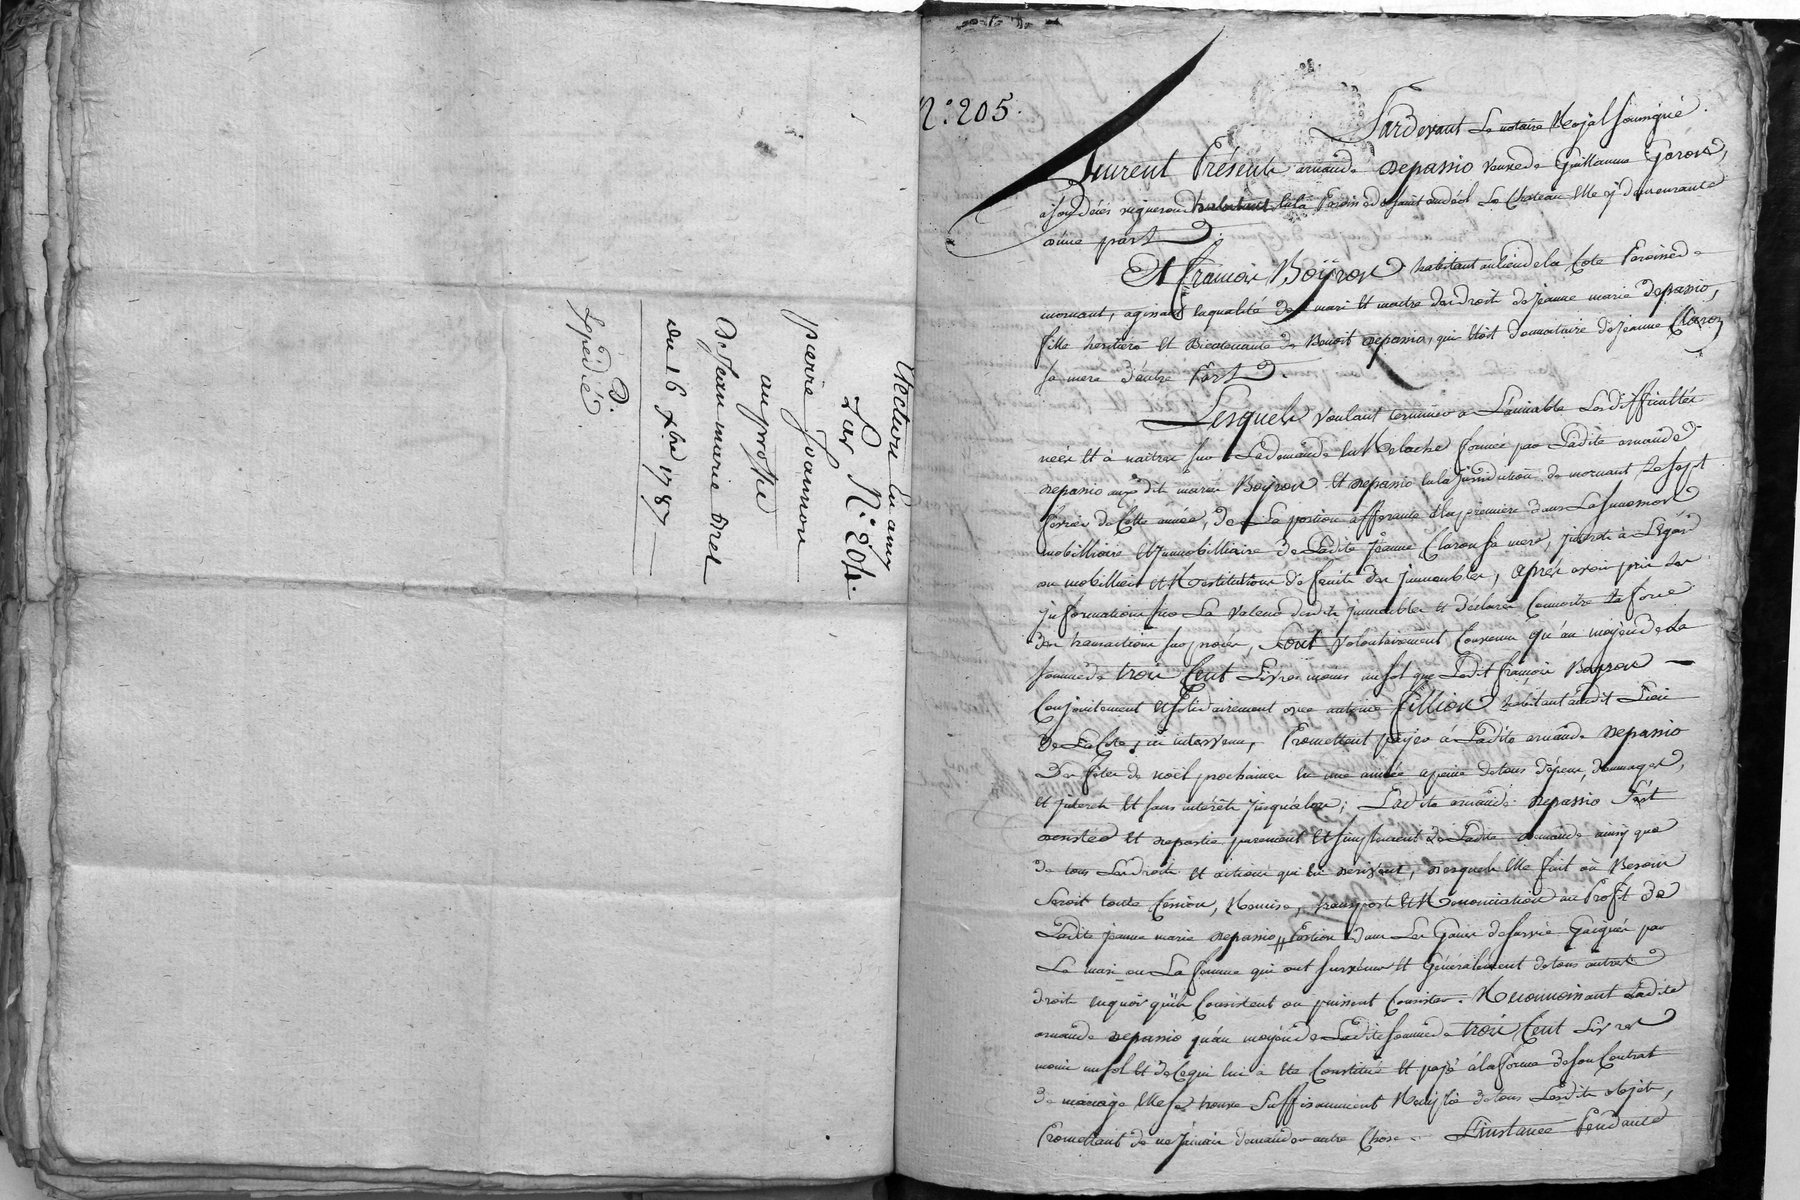 Election en amy
Par N.° 204.
pierre Joannon
au proffit
De Jean marie Viret
du 16 xbre 1787
D.
Expedié
N.° 205.
Pardevant Le notaire Royal soussigné
furent Présents arnaude Depassio veuve de Guillaume
vigneron habitant en la Paroisse de saint andéol Le Chateau Elle y demeurante
d'une part
Et françois Boyron habitant au lieu de la Cote Paroisse de
mornant, agissant en qualité de mari Et maitre des droits de jeanne marie Depassio,
fille heritiere Et Bientenante de Benoit Depassio, qui etoit donnataire de jeanne Claron
sa mere d'autre Part
Lesquels voulant terminer a L'amiable Les difficultés
nées Et à naitre sur La demande en Relache formée par Ladite arnaude
Depassio auxdits mariés Boyron Et Depassio en la jurisdiction de mornant Le sept
fevrier de Cette année, de La portion afferante a la premiere dans La succession
mobilliaire Et Immobilliaire de Ladite Jeanne Claron sa mere, interets à L'égard
du mobillier Et Restitutions de fruits des immeubles, après avoir pris des
informations sur La valeur desdits immeubles Et déclaré Connoitre La force
des transactions sur procès, sont volontairement Convenus qu'au moyen de La
somme de trois Cent Livres moins un sol que Ledit françois Boyron
Conjointement Et solidairement avec antoine fillion habitant audit Lieu
de La Cote, ici intervenu, Promettent payer à Ladite arnaude Depassio
Des fetes de noël prochaines en une année a peine de tous dépens, dommages,
et interets Et sans intérêts jusqu'alors; Ladite arnaude Depassio s'est
desistée et departie purement Et simplement de Ladite demande ainsy que
de tous Les droits Et actions qui en derivent, desquels Elle fait où Besoin
seroit toute Cession, Remise, transport Et Renonciation au Profit de
Ladite jeanne marie Depassio, Portion dans Les Gains de survie Gaignés par
Le mari ou La femme qui ont survécu Et Généralement de tous autres
droits en quoi qu'ils Consistent ou puissent Consister. Reconnoissant Ladite
arnaude Depassio qu'au moyen de Ladite somme de trois Cent Livres
moins un sol Et de Ce qui lui a été Constitué Et payé à la forme de son Contrat
de mariage Elle se trouve suffisamment Remplie de tous Lesdits objets,
Promettant de ne jamais demander autre Chose. L'instance Pendante